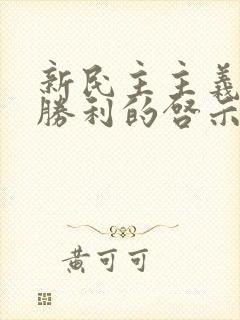 新民主主義
勝利的啓示
黃可可